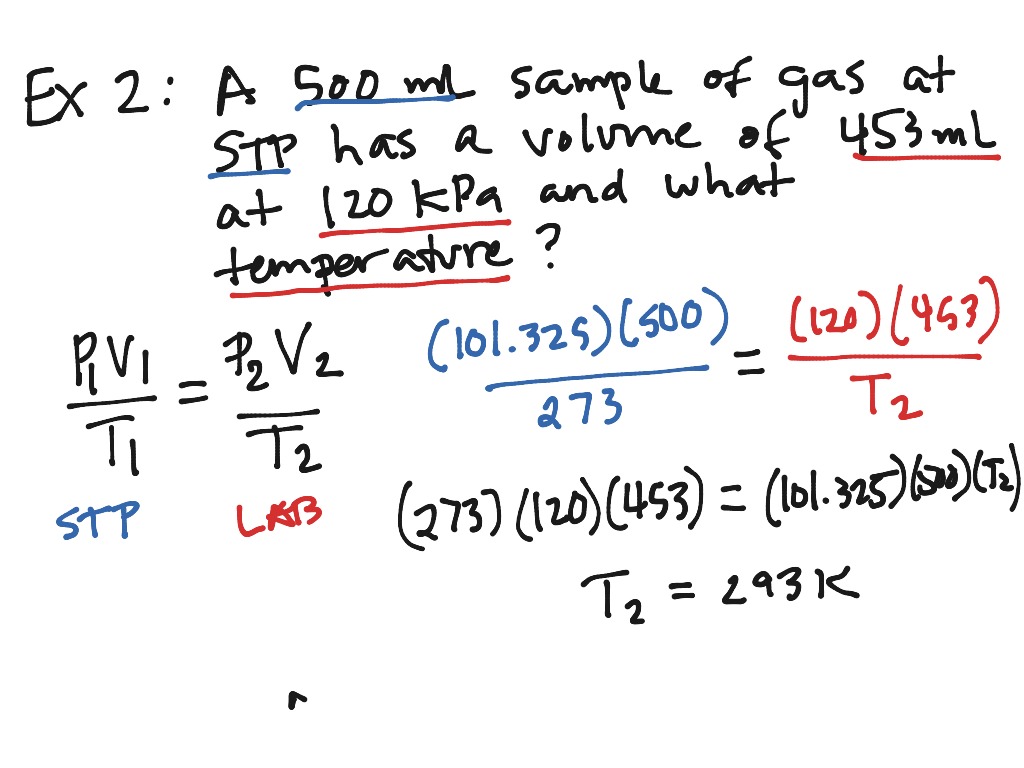 Ex 2: A 500 mL sample of gas at
STP has a volume of 453 mL
at 120 kPa and what
temperature?
P₁V₁/T₁ = P₂V₂/T₂
STP LAB
(101.325)(500)/273 = (120)(453)/T₂
(273)(120)(453) = (101.325)(500)(T₂)
T₂ = 293 K